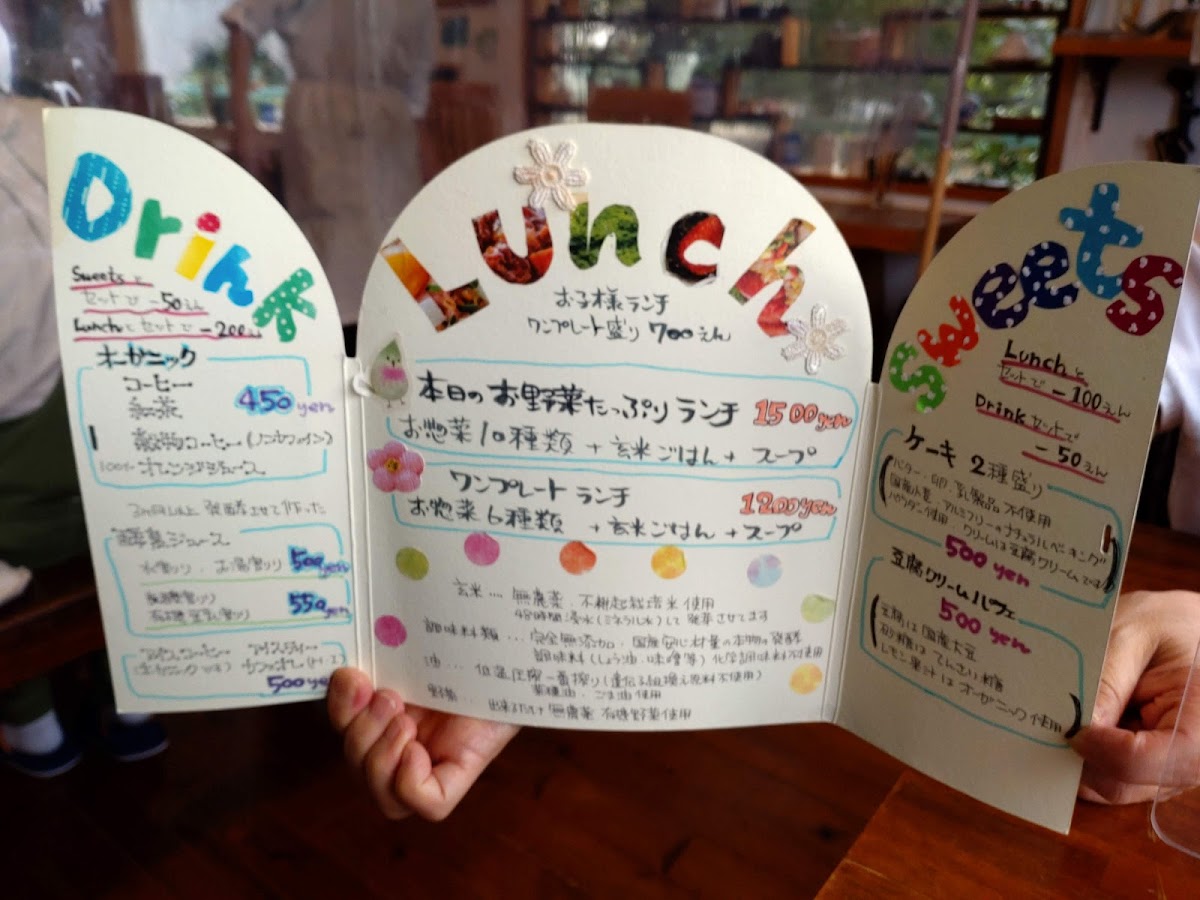 Drink
Sweetsと
セットで -50えん
Lunchとセットで -200えん
オーガニック
コーヒー
紅茶
450yen
穀物コーヒー(ノンカフェイン)
100% オレンジジュース
3ヶ月以上 発酵させて作った
酵素ジュース
水割り . お湯割り 500yen
炭酸割り
有機豆乳割り 550yen
アイスコーヒー アイスティー
500yen
Lunch
お子様ランチ
ワンプレート盛り 700えん
本日の お野菜たっぷり ランチ 1500yen
お惣菜10種類 + 玄米ごはん + スープ
ワンプレート ランチ 1200yen
お惣菜6種類 + 玄米ごはん + スープ
玄米 … 無農薬 . 不耕起栽培米使用
48時間浸水(ミネラル水)して発芽させてます
調味料類 … 完全無添加 . 国産安心材量の本物の発酵
調味料(しょう油・味噌等) 化学調味料不使用
油 … 低温圧搾一番搾り(遺伝子組換え原料不使用)
菜種油 . ごま油使用
野菜 … 出来るだけ無農薬 有機野菜使用
Sweets
Lunchと
セットで -100えん
Drinkセットで
-50えん
ケーキ 2種盛り
(バター・卵・乳製品 不使用
国産小麦・アルミフリーのナチュラルベーキング
パウダー使用 . クリームは豆腐クリームです)
500 yen
豆腐クリームパフェ
500 yen
(豆腐は国産大豆
砂糖はてんさい糖
レモン果汁はオーガニック使用)